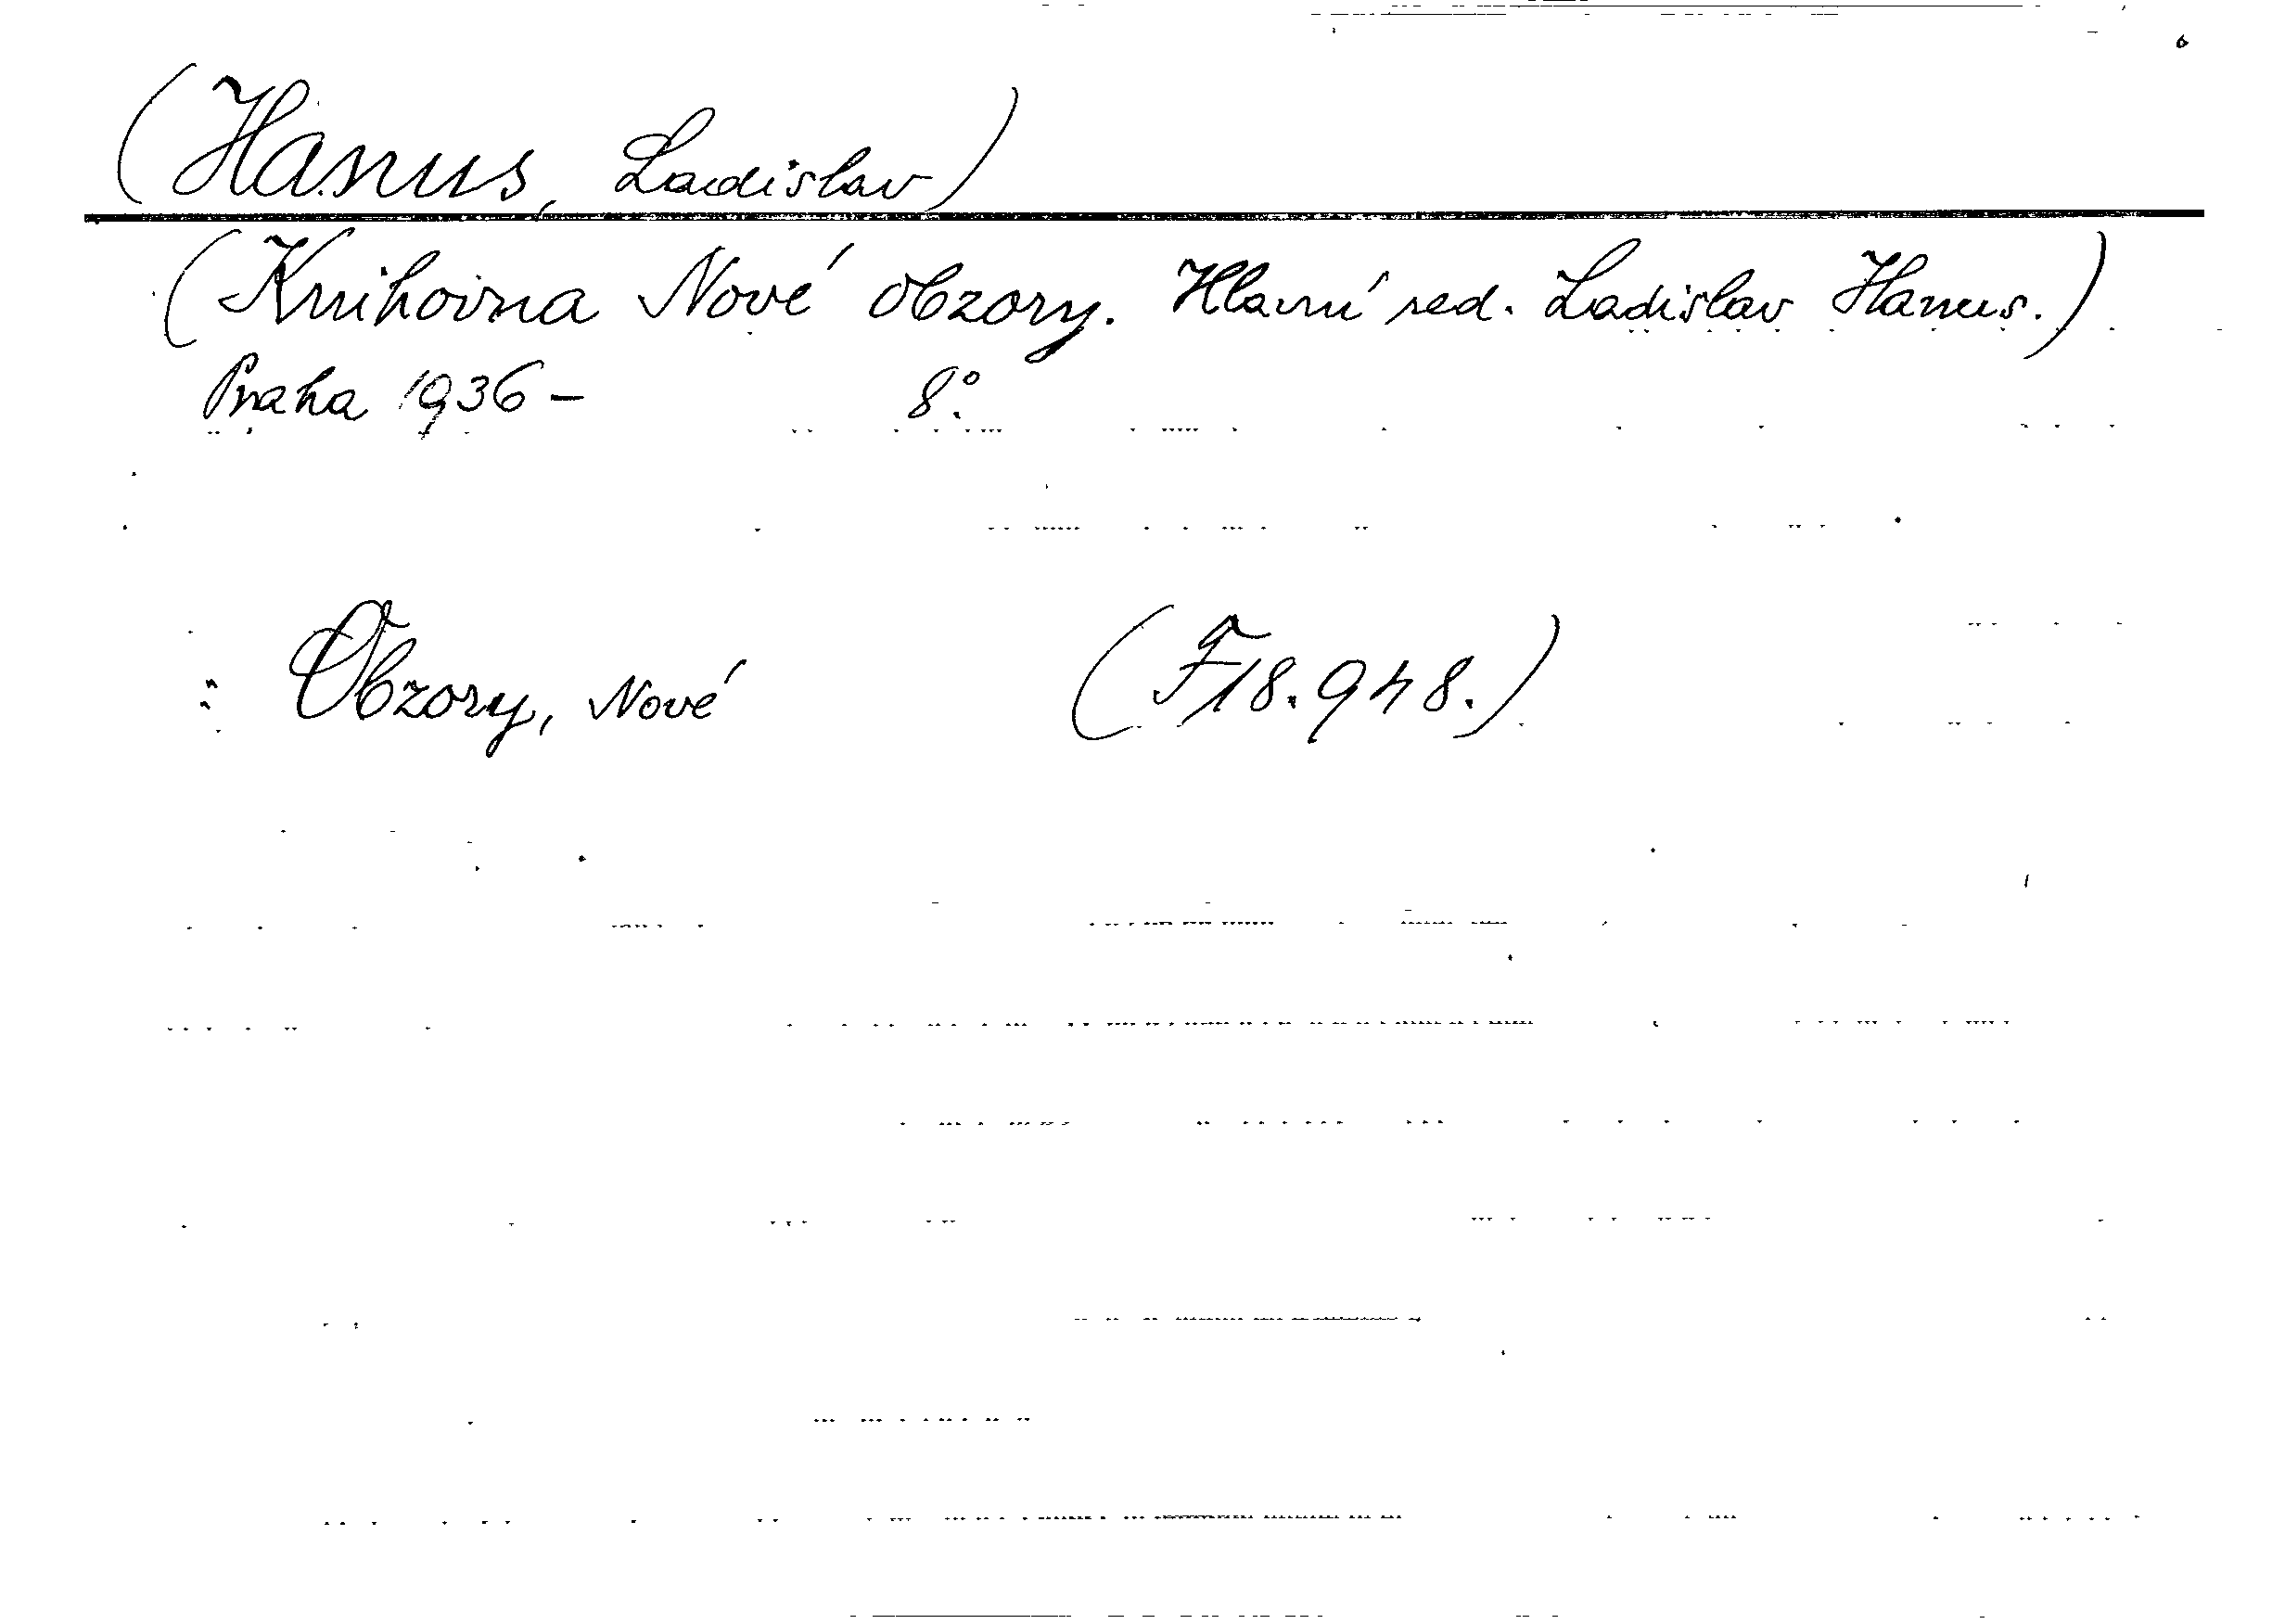 (Hanus, Ladislav)
(Knihovna Nové obzory. Hlavní red. Ladislav Hanus.)
Praha 1936 – 8°.
: Obzory, Nové (F 18.948.)